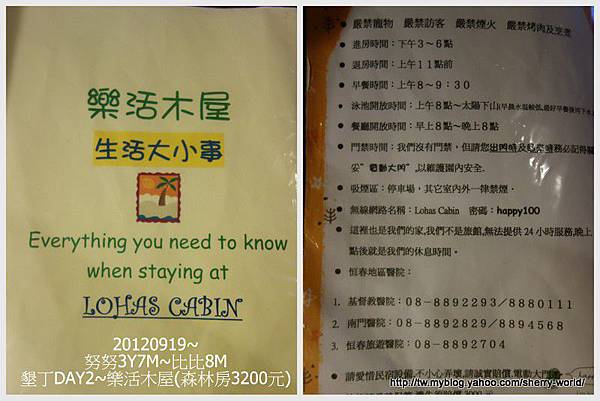 樂活木屋
生活大小事
Everything you need to know
when staying at
LOHAS CABIN
20120919~
努努3Y7M~比比8M
墾丁DAY2~樂活木屋(森林房3200元)
嚴禁寵物 嚴禁訪客 嚴禁煙火 嚴禁烤肉及烹煮
進房時間：下午3~6點
退房時間：上午11點前
早餐時間：上午8~9：30
泳池開放時間：上午8點~太陽下山(早晨水溫較低,最好早餐後再下水
餐廳開放時間：早上8點~晚上8點
門禁時間：我們沒有門禁，但請您出門時及晚歸時務必記得關
妥"電動大門",以維護園內安全.
吸煙區：停車場，其它室內外一律禁煙．
無線網路名稱：Lohas Cabin 密碼：happy100
這裡也是我們的家,我們不是旅館,無法提供24小時服務,晚上
點後就是我們的休息時間。
恆春地區醫院：
1. 基督教醫院：08-8892293/8880111
2. 南門醫院：08-8892829/8894568
3. 恆春旅遊醫院：08-8892704
請愛惜民宿設備,不小心弄壞,請誠實賠償,電動大門
http://tw.myblog.yahoo.com/sherry-world/